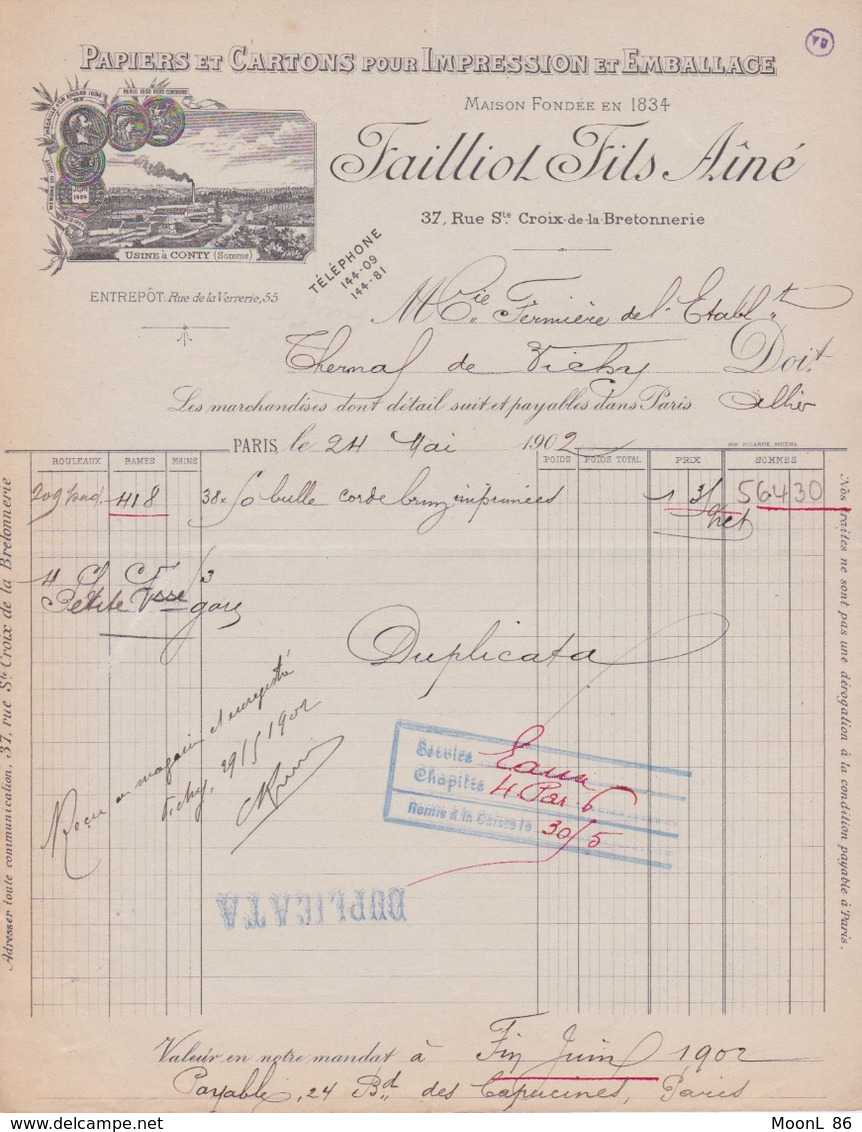 PAPIERS ET CARTONS POUR IMPRESSION ET EMBALLAGE
MAISON FONDÉE EN 1834
Failliot Fils Aîné
37, Rue Ste. Croix-de-la-Bretonnerie
USINE à CONTY (Somme)
TÉLÉPHONE
144-09
144-81
ENTREPÔT. Rue de la Verrerie, 55
M Cie Fermière de l'Etablt
Thermal de Vichy Doit
Les marchandises dont détail suit et payables dans Paris Allier
PARIS, le 24 Mai 1902
ROULEAUX RAMES MAINS POIDS POIDS TOTAL PRIX SOMMES
209 418 38 x 50 bulle corde imprimées 1 35 564 30
net
Petite Vsse gare
Duplicata
Reçu en magasin et enregistré
Vichy, 29/5 1902
Service Eaux
Chapitre 4 Par. 6
Remis à la Caisse le 30/5
DUPLICATA
Adresser toute communication, 37, rue Ste Croix de la Bretonnerie
Nos traites ne sont pas une dérogation à la condition payable à Paris.
Valeur en notre mandat à Fin Juin 1902
Payable, 24 Bd des Capucines, Paris
MoonL 86